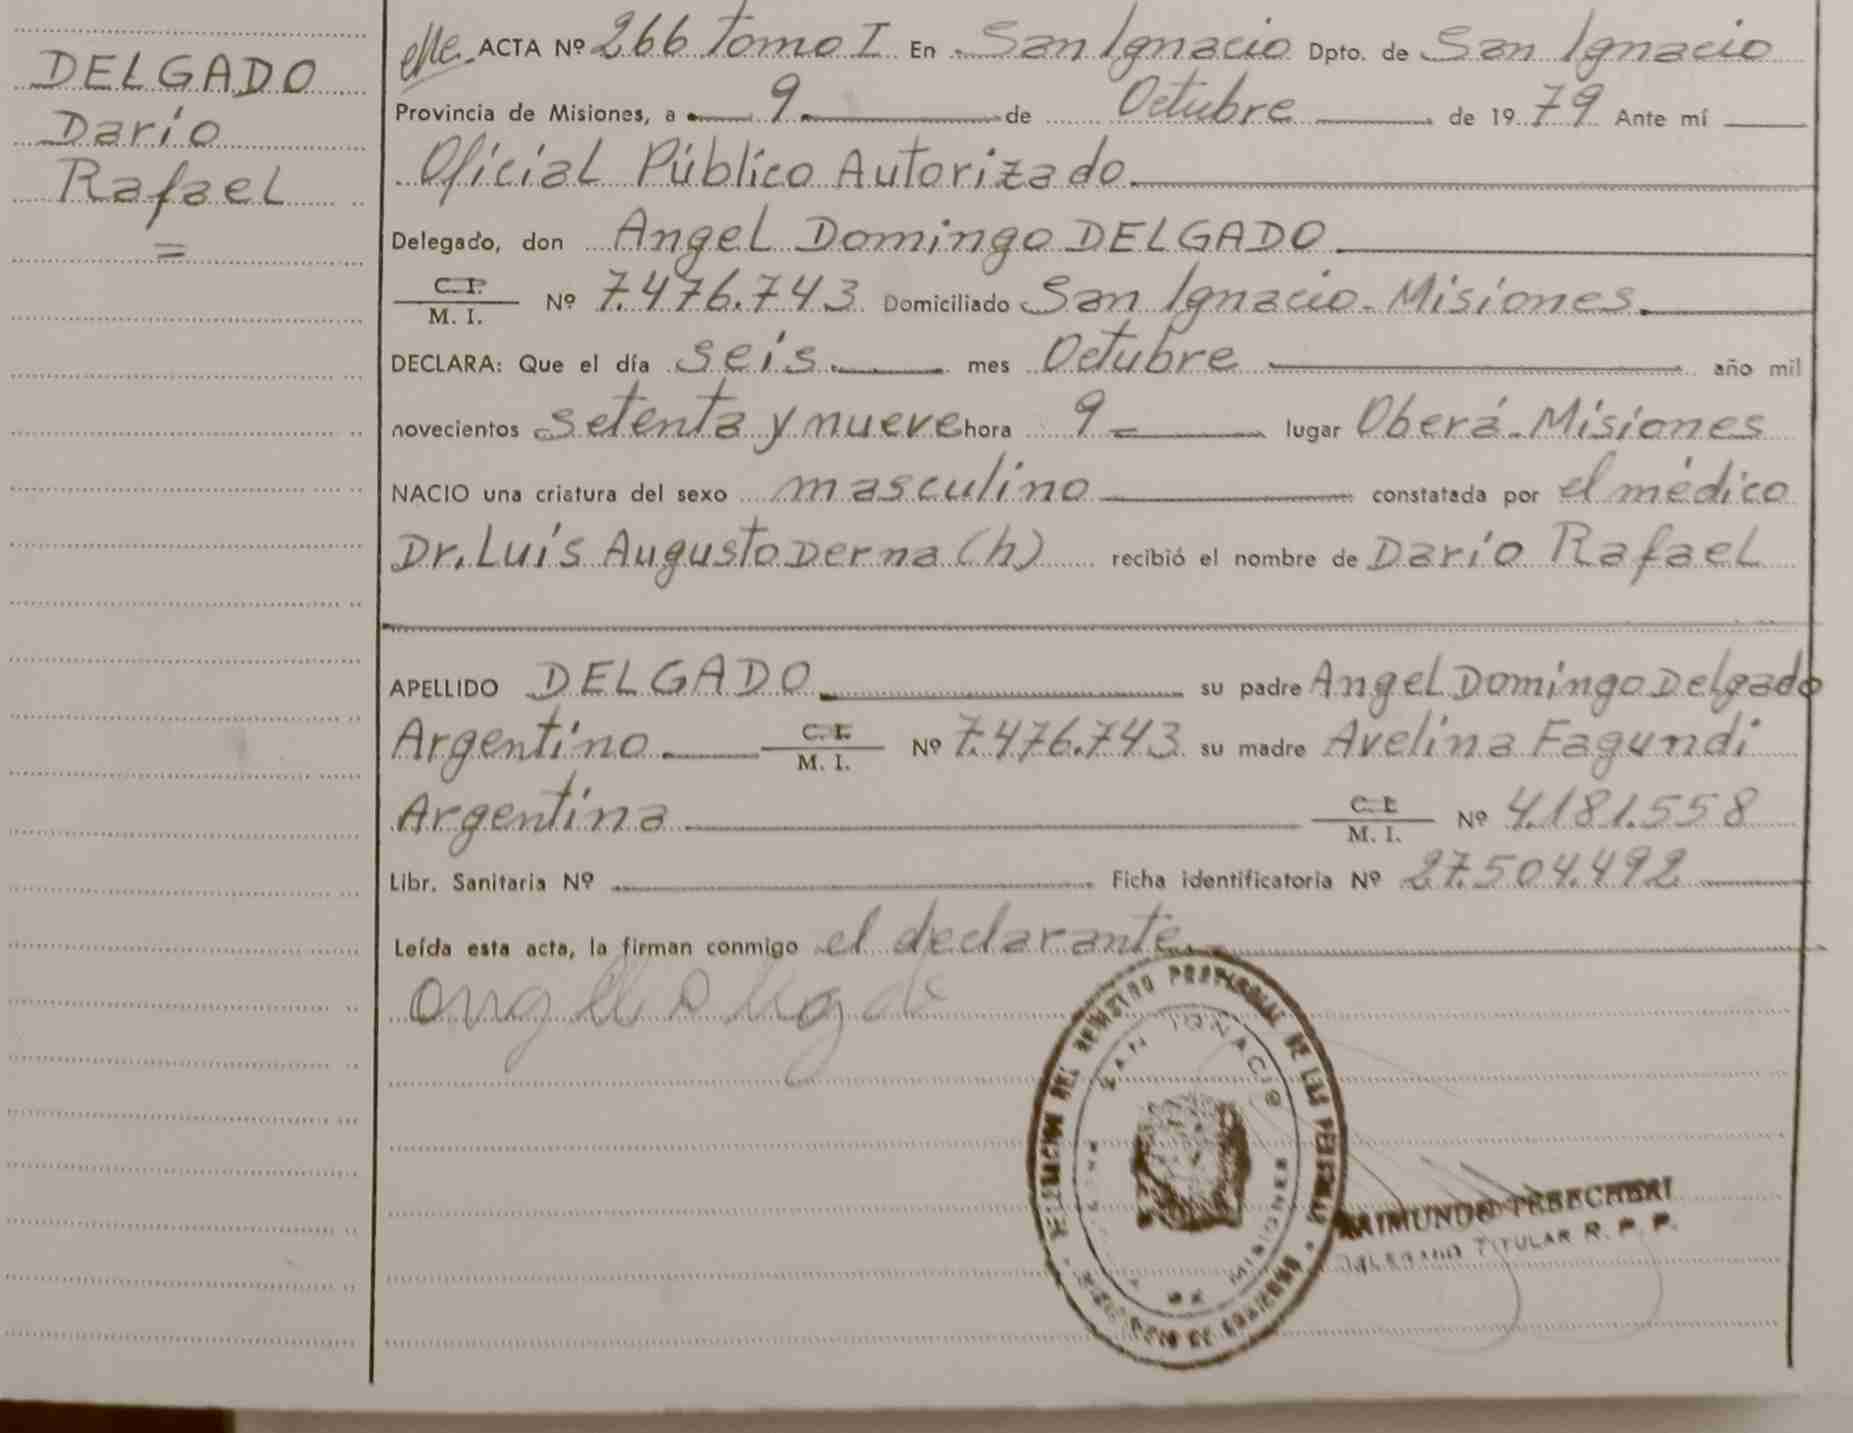 DELGADO
Darío
Rafael
=
ACTA Nº 266 Tomo I En San Ignacio Dpto. de San Ignacio
Provincia de Misiones, a 9 de Octubre de 1979 Ante mí
Oficial Público Autorizado
Delegado, don Angel Domingo DELGADO
C. I.
M. I. Nº 7.476.743 Domiciliado San Ignacio - Misiones
DECLARA: Que el día seis mes Octubre año mil
novecientos setenta y nueve hora 9 lugar Oberá - Misiones
NACIO una criatura del sexo masculino constatada por el médico
Dr. Luis Augusto Derna (h) recibió el nombre de Darío Rafael
APELLIDO DELGADO su padre Angel Domingo Delgado
Argentino C. I. M. I. Nº 7.476.743 su madre Avelina Fagundi
Argentina C. I. M. I. Nº 4.181.558
Libr. Sanitaria Nº Ficha identificatoria Nº 27.504.492
Leída esta acta, la firman conmigo el declarante
DELEGACION DEL REGISTRO PROVINCIAL DE LAS PERSONAS
SAN IGNACIO
MISIONES
MINISTERIO DE GOBIERNO
RAIMUNDO
DELEGADO TITULAR R. P. P.